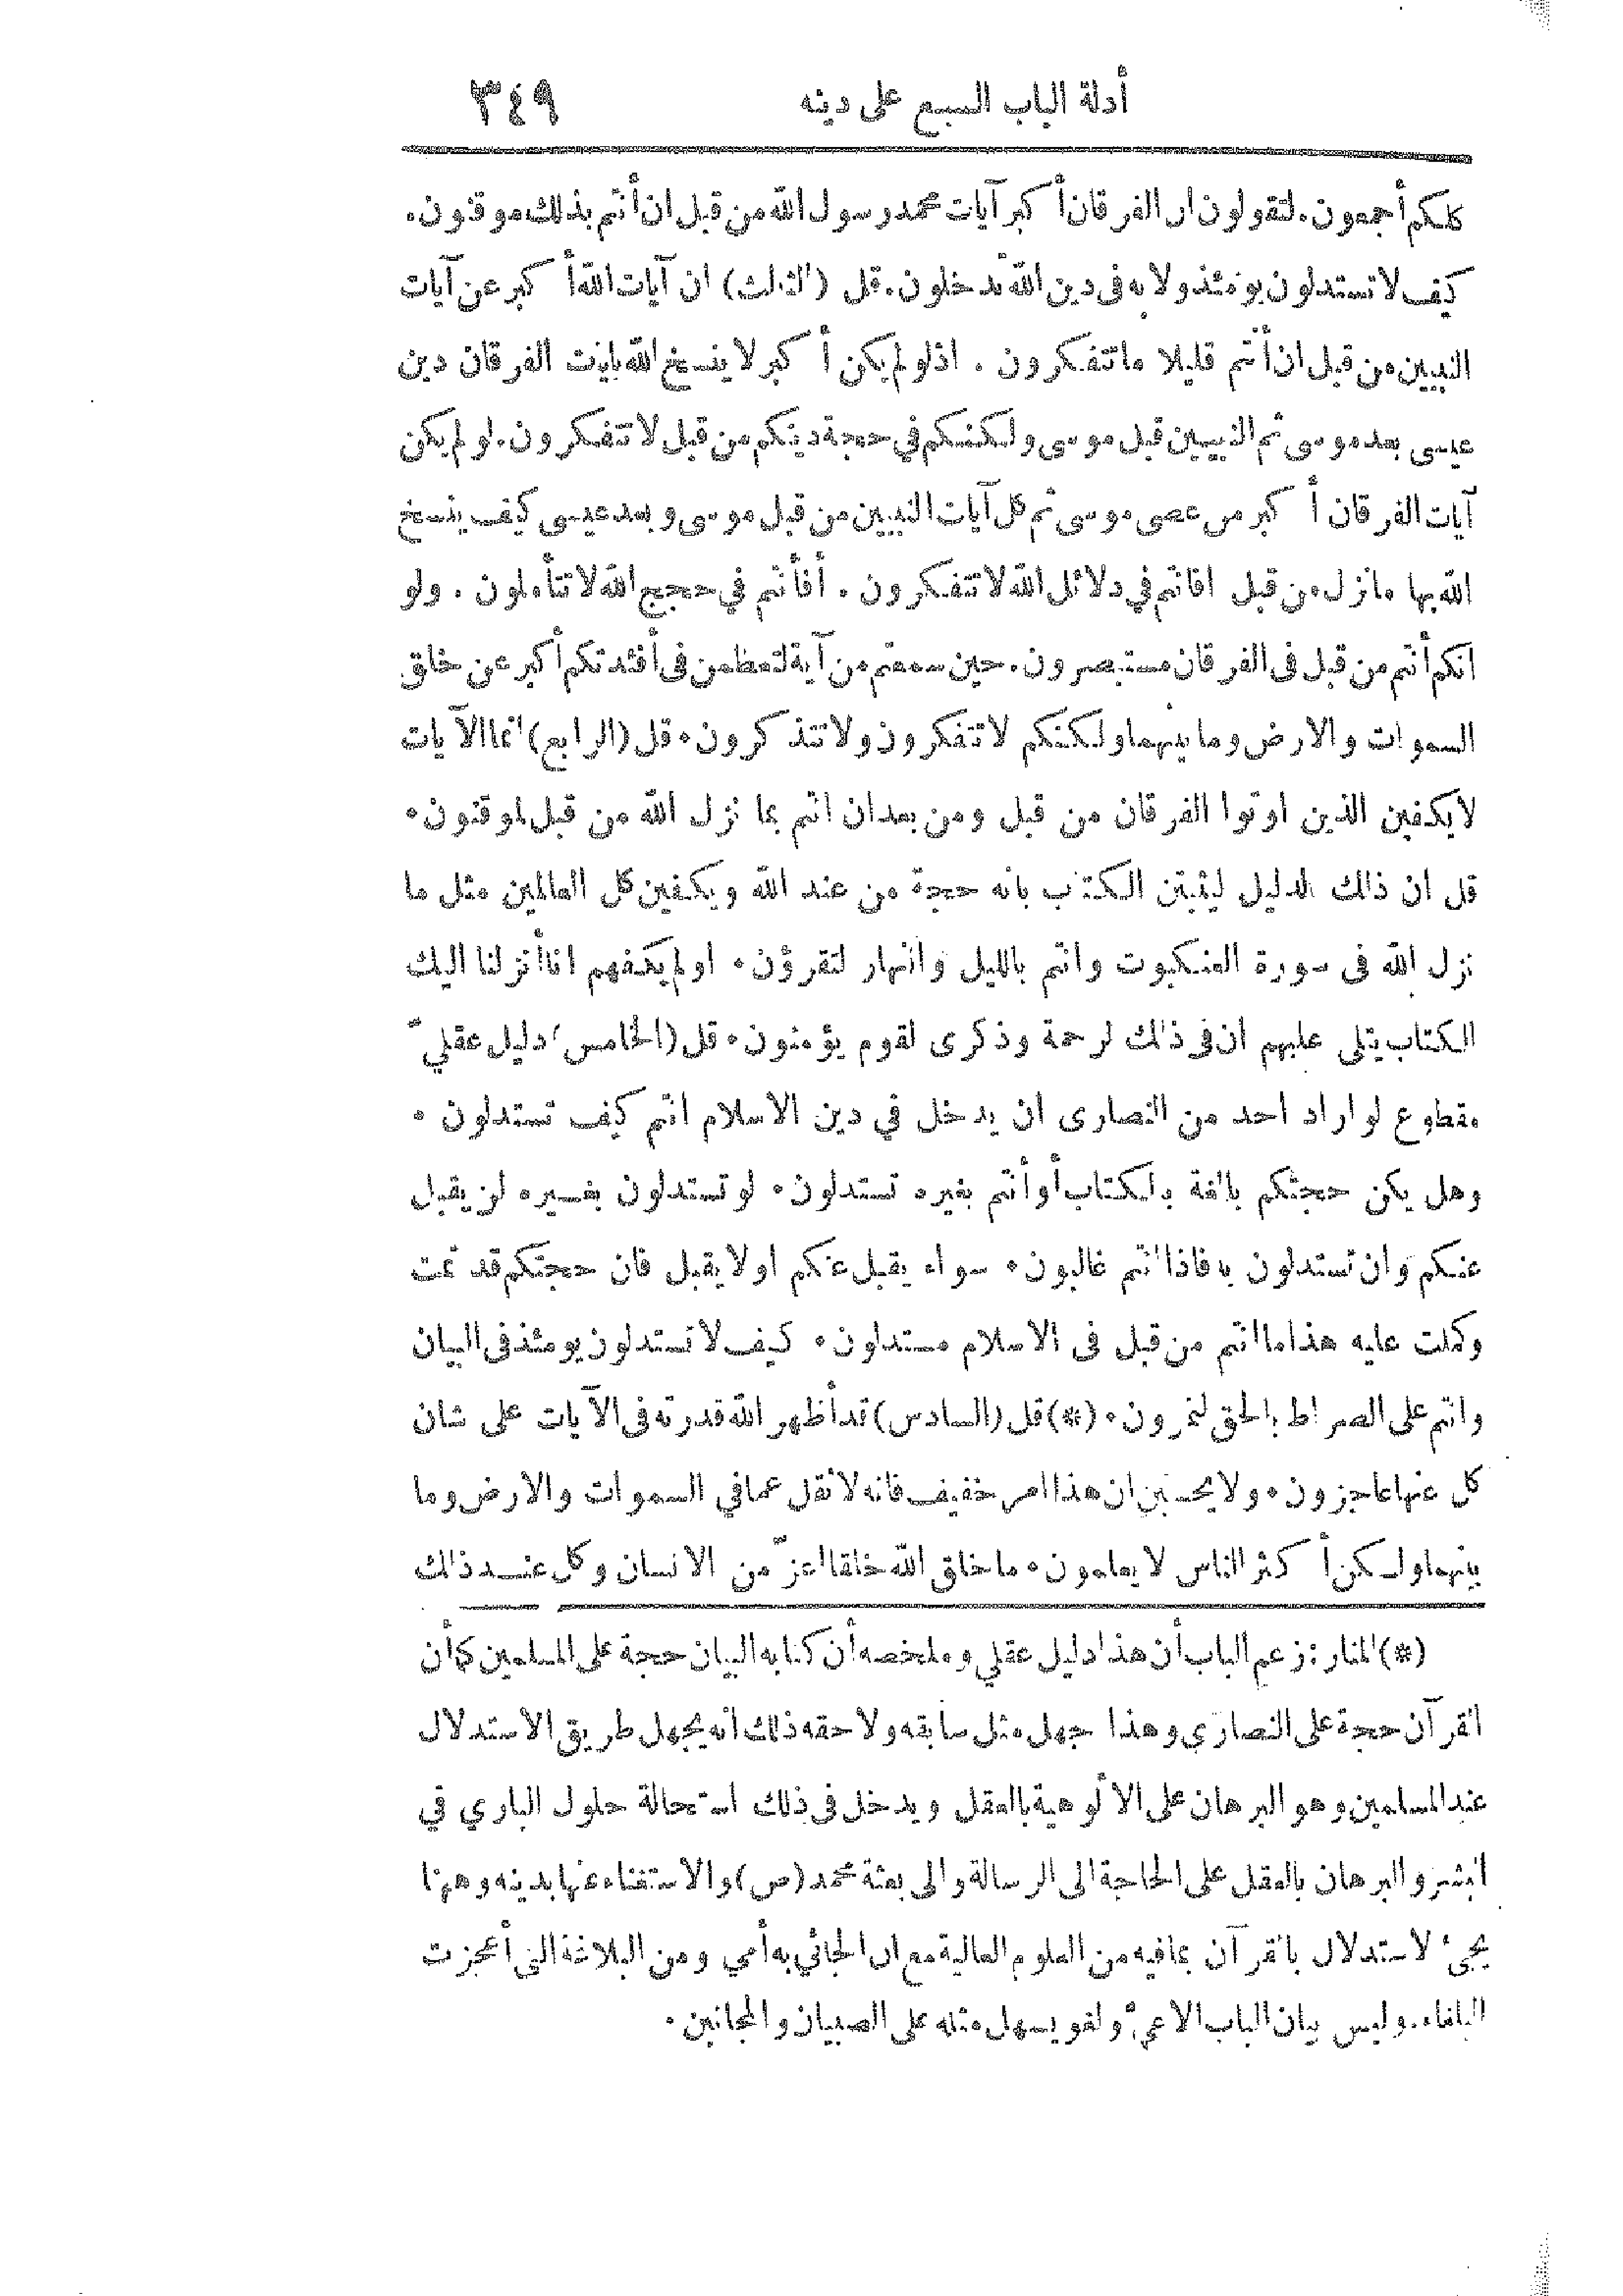 أدلة الباب السبع على دينه ٣٤٩
كلكم أجمعون. لتقولون ان الفرقان أكبر آيات محمد رسول الله من قبل ان أنتم بذلك موقنون.
كيف لا تستدلون يومئذ ولا به في دين الله تدخلون. قل (الثالث) ان آيات الله أكبر عن آيات
النبيين من قبل ان أنتم قليلا ما تتفكرون . اذ لو لم يكن أكبر لا ينسخ الله بآيات الفرقان دين
عيسى بعد موسى ثم النبيين قبل موسى ولكنكم في حجة دينكم من قبل لا تتفكرون. لو لم يكن
آيات الفرقان أكبر من عصى موسى ثم كل آيات النبيين من قبل موسى وبعد عيسى كيف ينسخ
الله بها ما نزل من قبل افانتم في دلائل الله لا تتفكرون . أفأنتم في حجج الله لا تتأملون . ولو
انكم أنتم من قبل في الفرقان مستبصرون. حين سمعتم من آية لتعظمن في أفئدتكم أكبر عن خلق
السموات والارض وما بينهما ولكنكم لا تتفكرون ولا تتذكرون. قل (الرابع) انما الآيات
لا يكفين الذين اوتوا الفرقان من قبل ومن بعد ان انتم بما نزل الله من قبل لموقنون.
قل ان ذلك الدليل ليثبتن الكتاب بانه حجة من عند الله ويكفين كل العالمين مثل ما
نزل الله في سورة العنكبوت وانتم بالليل والنهار لتقرؤن. او لم يكفهم انا أنزلنا اليك
الكتاب يتلى عليهم ان في ذلك لرحمة وذكرى لقوم يؤمنون. قل (الخامس) دليل عقليّ
مقطوع لو اراد احد من النصارى ان يدخل في دين الاسلام انتم كيف تستدلون .
وهل يكن حجتكم بالغة بالكتاب أو أنتم بغيره تستدلون. لو تستدلون بغيره لن يقبل
عنكم وان تستدلون به فاذا انتم غالبون. سواء يقبل عنكم او لا يقبل فان حجتكم قد تمت
وكملت عليه هذا ما انتم من قبل في الاسلام مستدلون. كيف لا تستدلون يومئذ في البيان
وانتم على الصراط بالحق لتمرون. (*) قل (السادس) قد أظهر الله قدرته في الآيات على شان
كل عنها عاجزون. ولا يحسبن ان هذا امر خفيف فانه لا ثقل عما في السموات والارض وما
بينهما ولكن أكثر الناس لا يعلمون. ما خلق الله خلقا اعزّ من الانسان وكل عند ذلك
(*) المنار : زعم الباب أن هذا دليل عقلي وملخصه أن كتابه البيان حجة على المسلمين كما أن
القرآن حجة على النصارى وهذا جهل مثل سابقه ولاحقه ذلك انه يجهل طريق الاستدلال
عند المسلمين وهو البرهان على الألوهية بالعقل ويدخل في ذلك استحالة حلول الباري في
البشر والبرهان بالعقل على الحاجة الى الرسالة والى بعثة محمد (ص) والاستغناء عنها بدينه وههنا
يجئ الاستدلال بالقرآن بما فيه من العلوم العالية مع ان الجائي به أمي ومن البلاغة التي أعجزت
البلغاء. وليس بيان الباب الا عيّ ولغو يسهل مثله على الصبيان والمجانين.